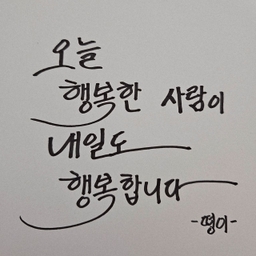 오늘
행복한 사람이
내일도
행복합니다
-명이-